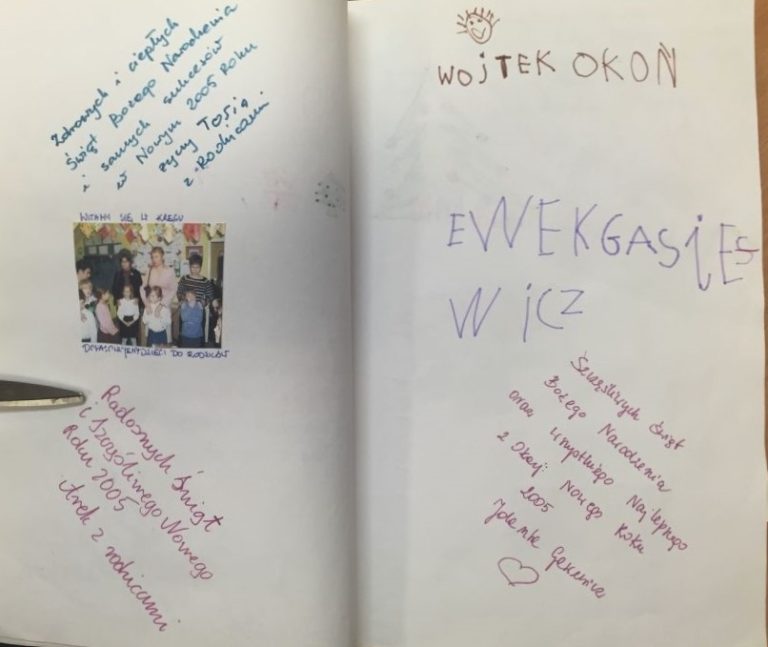 Zdrowych i ciepłych
Świąt Bożego Narodzenia
i samych sukcesów
w Nowym 2005 Roku
życzy Tosia
z Rodzicami
WITAMY SIĘ W KRĘGU
DZIECI DO RODZICÓW
Radosnych Świąt
i Szczęśliwego Nowego
Roku 2005
Arek z rodzicami
WOJTEK OKOŃ
EWEKGASIES
WICZ
Szczęśliwych Świąt
Bożego Narodzenia
oraz Wszystkiego Najlepszego
z Okazji Nowego Roku
2005